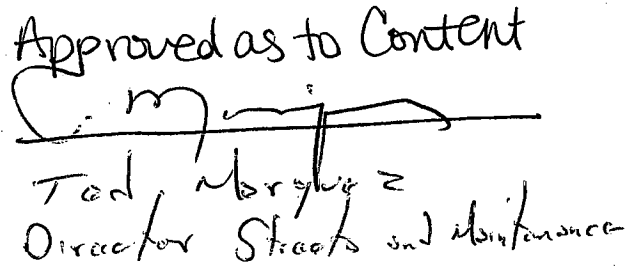 Approved as to Content
Ted Marquez
Director Streets and Maintenance